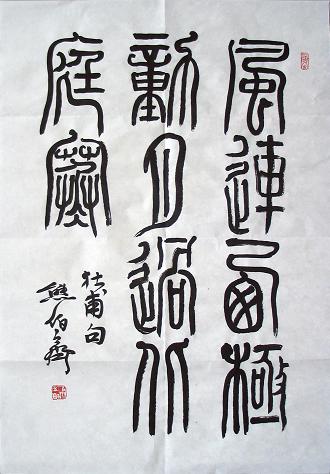 風連西極
動月過北
庭寒
杜甫句
熊伯齊